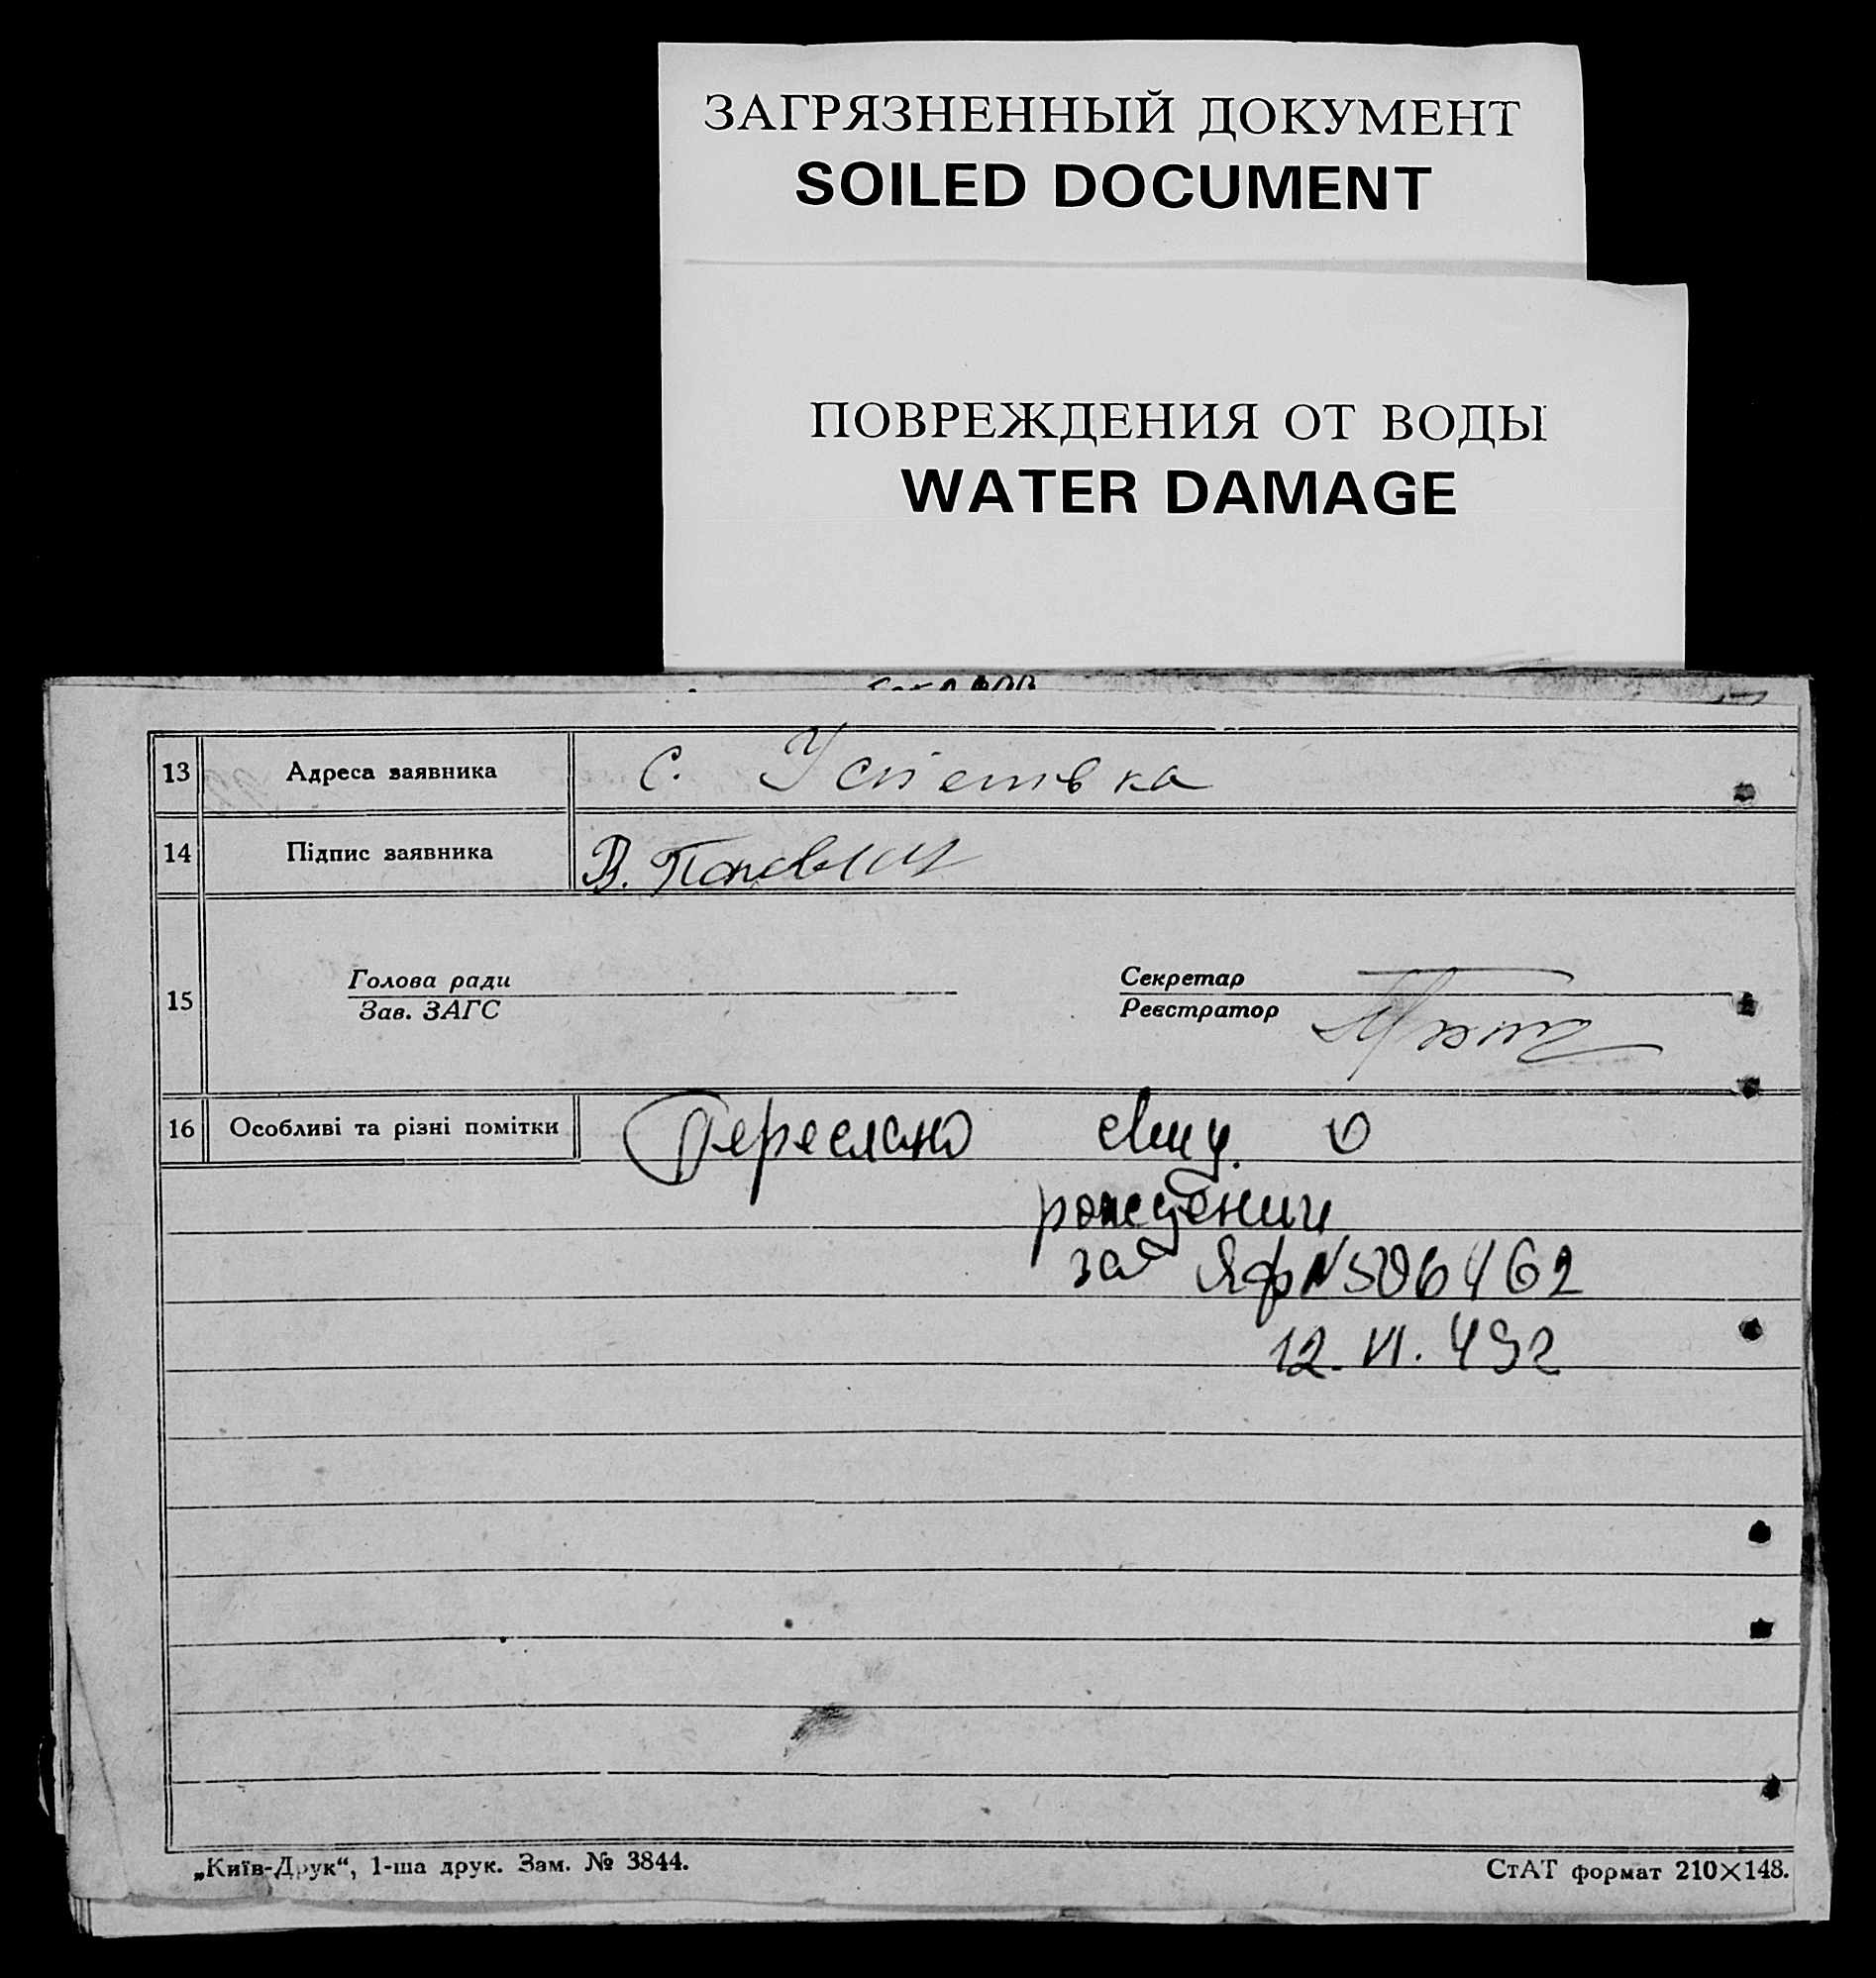 ЗАГРЯЗНЕННЫЙ ДОКУМЕНТ
SOILED DOCUMENT
ПОВРЕЖДЕНИЯ ОТ ВОДЫ
WATER DAMAGE
13 Адреса заявника с.
14 Підпис заявника В. Попович
15 Голова ради Секретар
Зав. ЗАГС Реєстратор
16 Особливі та різні помітки Переслано о
рождении
за ЯФ № 506462
12. VI. 49г
„Київ-Друк“, 1-ша друк. Зам. № 3844. СтАТ формат 210×148.